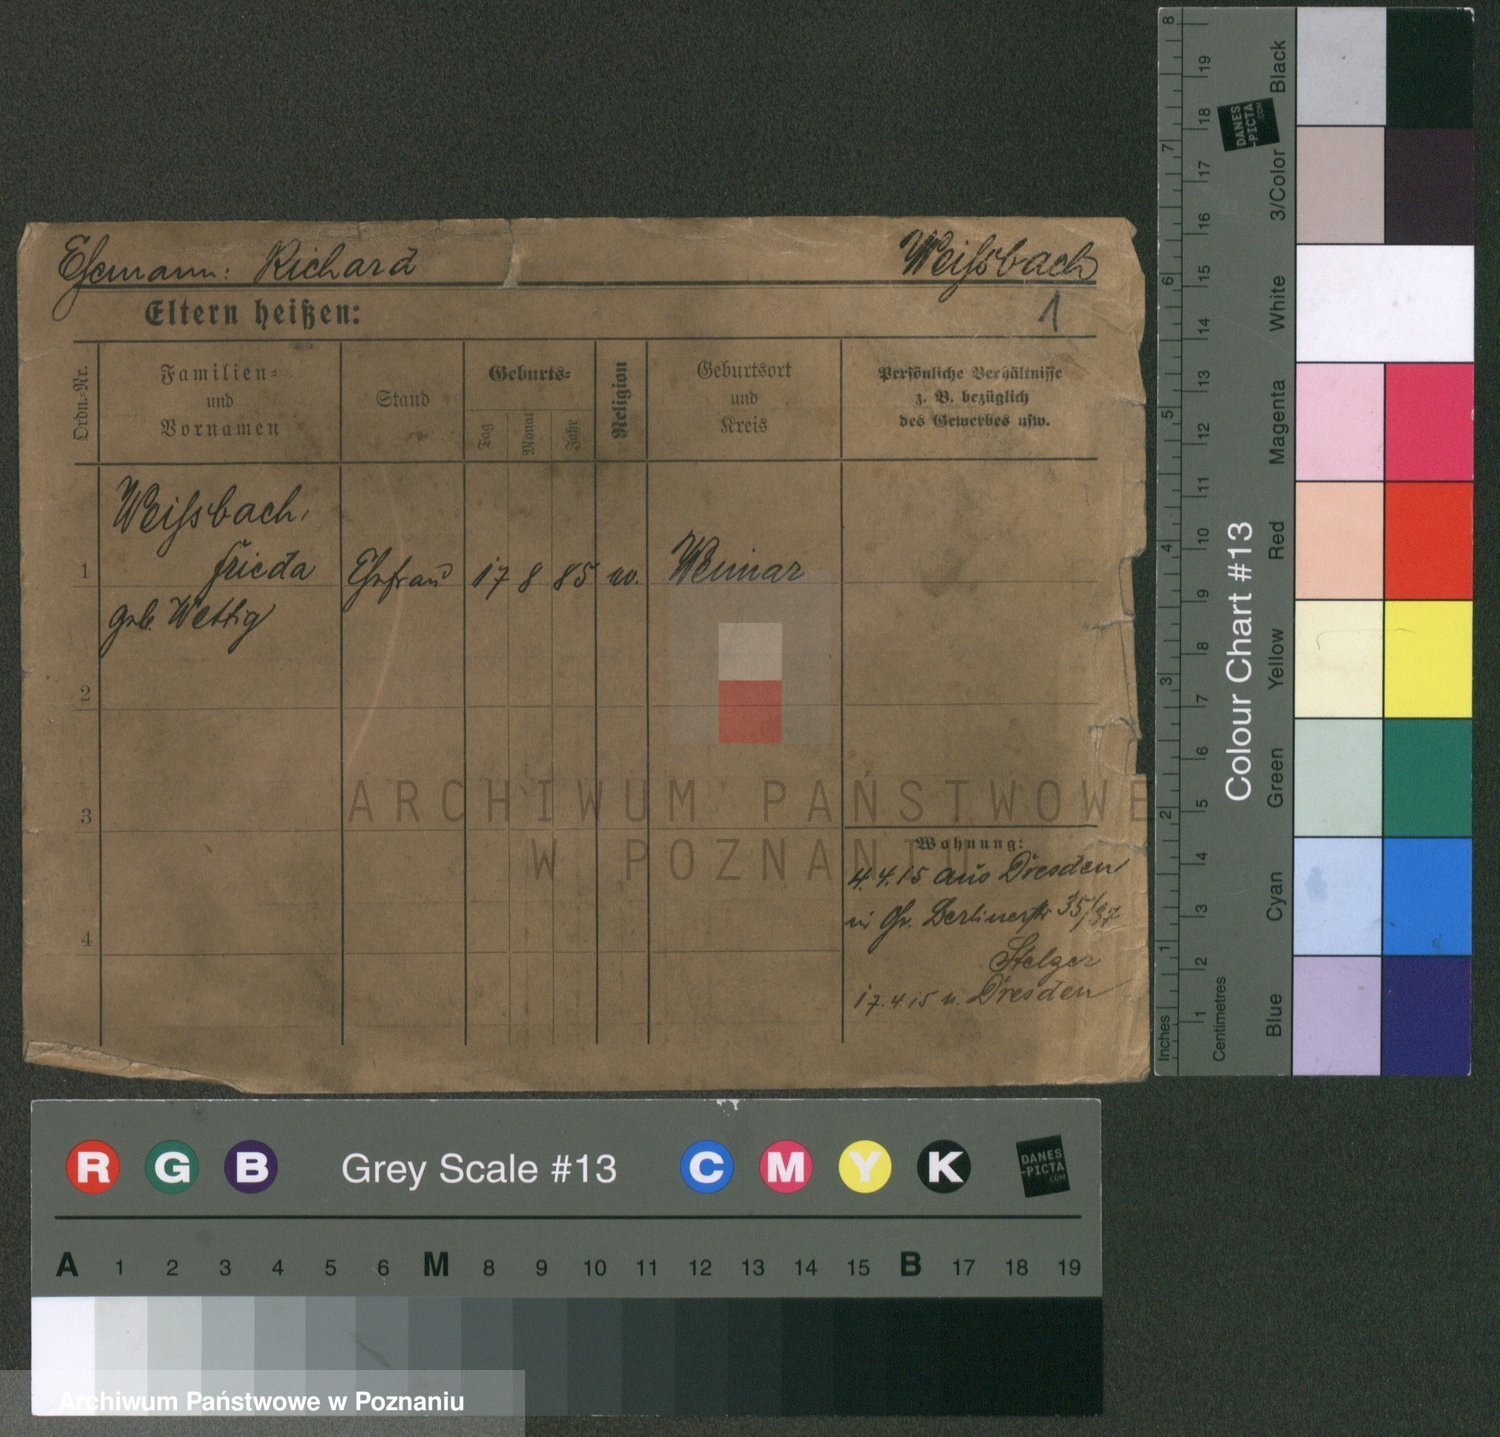 Ehemann: Richard Weißsbach
Eltern heißen: 1
Ordn.-Nr.
Familien-
und
Vornamen
Stand
Geburts-
Tag
Monat
Jahr
Religion
Geburtsort
und
Kreis
Persönliche Verhältnisse
z. B. bezüglich
des Gewerbes usw.
Weißsbach,
1 Frieda Ehefrau 17 8 85 w. Weimar
geb. Wettig
2
3
4
Wohnung:
4.4.15 aus Dresden
in Gr. Berlinerstr 35/37
Stelzer
17.4.15 n. Dresden
ARCHIWUM PAŃSTWOWE
W POZNANIU
Inches
1
2
3
4
5
6
7
8
Centimetres
1
2
3
4
5
6
7
8
9
10
11
12
13
14
15
16
17
18
19
DANES
-PICTA
.COM
Colour Chart #13
Blue
Cyan
Green
Yellow
Red
Magenta
White
3/Color
Black
R G B Grey Scale #13 C M Y K
DANES
-PICTA
.COM
A 1 2 3 4 5 6 M 8 9 10 11 12 13 14 15 B 17 18 19
Archiwum Państwowe w Poznaniu